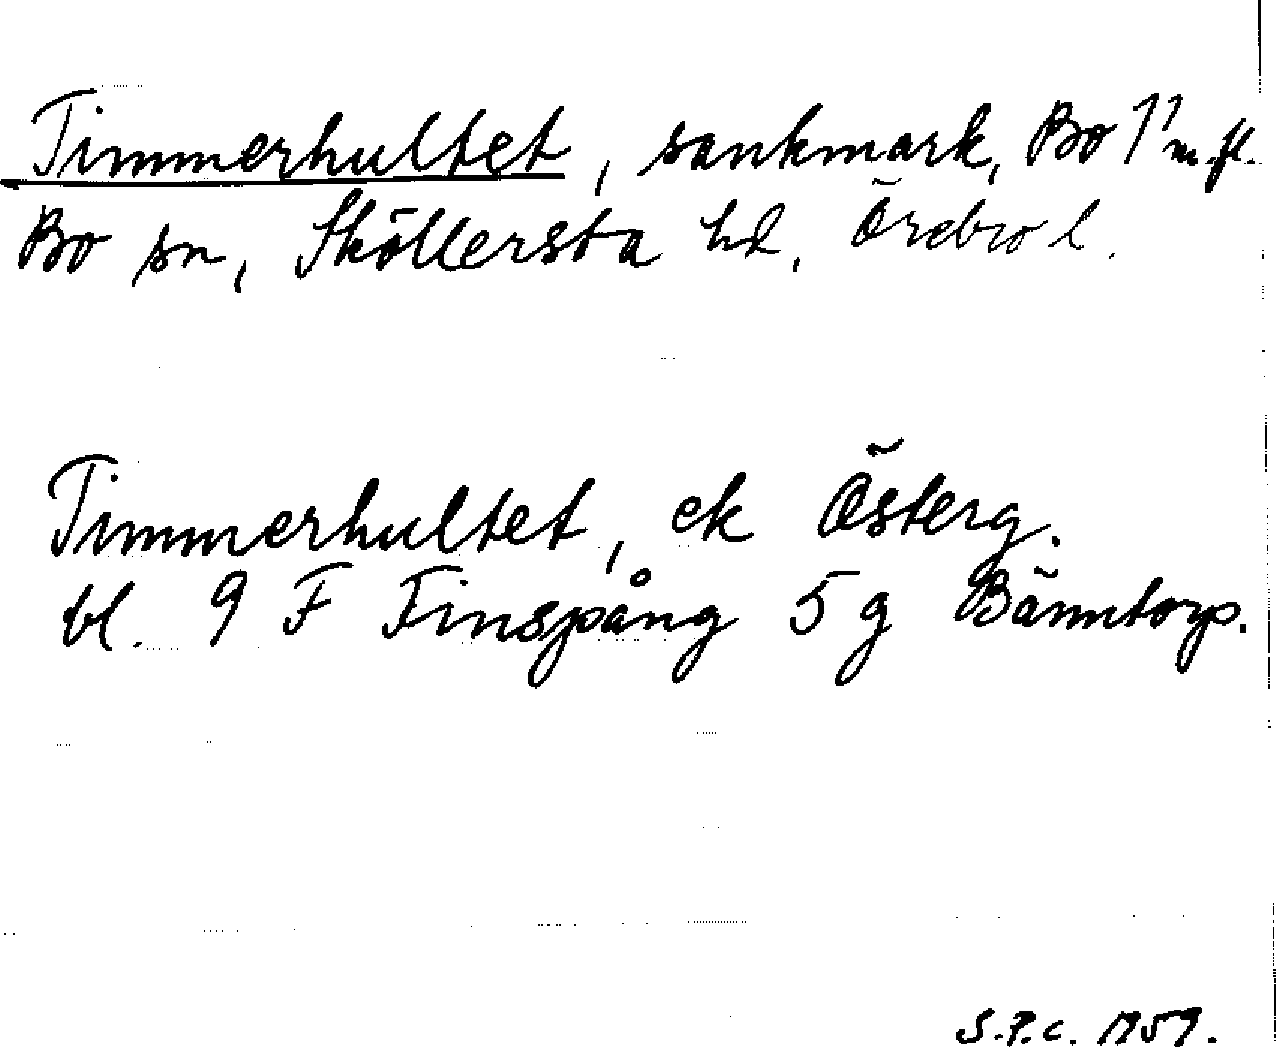 Timmerhultet, sankmark, Bo 1¹ m.fl.
Bo sn, Sköllersta hd, Örebro l.
Timmerhultet, ek Österg.
bl. 9 F Finspång 5 g Bänntorp.
S.P.C. 1959.